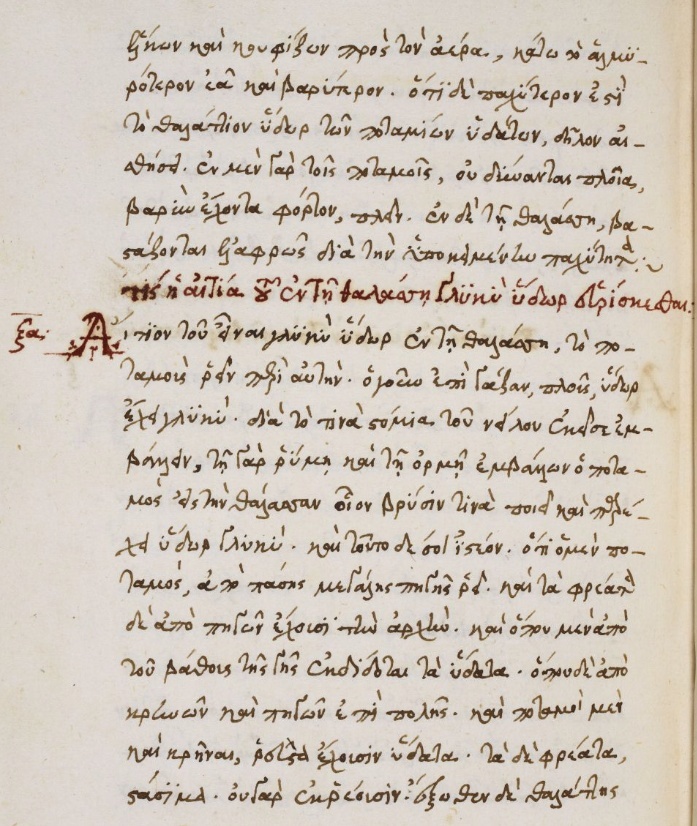 ξῆνων καὶ κουφίζων πρὸς τὸν ἀέρα, κάτω τὸ ἁλμυ-
ρότερον ἐᾶ καὶ βαρύτερον. ὅτι δὲ παχύτερον ἐστὶ
τὸ θαλάττιον ὕδωρ τῶν ποταμίων ὑδάτων, δῆλον αἰ-
σθήσει. ἐν μὲν γὰρ τοῖς ποταμοῖς, οὐ δύνανται πλοῖα,
βαρὺν ἔχοντα φόρτον, πλεῖν. ἐν δὲ τῇ θαλάσσῃ, βα-
στάζονται ἐλαφρῶς διὰ τὴν ὑποκειμένην παχύτητα:
τίς ἡ αἰτία τοῦ ἐν τῇ θαλάσσῃ γλυκὺ ὕδωρ εὑρίσκεσθαι:
ξα. Αἴτιον τοῦ εἶναι γλυκὺ ὕδωρ ἐν τῇ θαλάσσῃ, τὸ πο-
ταμοὺς ῥεῖν περὶ αὐτήν. ὁ γοῦν ἐπὶ γάζαν, πλοῦς, ὕδωρ
ἔχει γλυκύ. διὰ τὸ τινὰ στόμια τοῦ νείλου ἐκεῖσε ἐμ-
βάλλειν, τῇ γὰρ ῥύμῃ καὶ τῇ ὁρμῇ ἐμβάλλων ὁ ποτα-
μὸς εἰς τὴν θάλασσαν οἷον βρύσιν τινὰ ποιεῖ καὶ παρέ-
χει ὕδωρ γλυκύ. καὶ τοῦτο δέ σοι ἰστέον. ὅτι ὁ μὲν πο-
ταμὸς, ἀπὸ πάσης μεγάλης πηγῆς ῥεῖ. καὶ τὰ φρέατα
δὲ ἀπὸ πηγῶν ἔχουσι τὴν ἀρχήν. καὶ ὅπου μὲν ἀπὸ
τοῦ βάθους τῆς γῆς ἐκδίδοται τὰ ὕδατα. ὅπου δὲ ἀπὸ
κρουνῶν καὶ πηγῶν ἐπιπολῆς. καὶ ποταμοὶ μὲν
καὶ κρῆναι, ῥευστὰ ἔχουσιν ὕδατα. τὰ δὲ φρέατα,
στάσιμα. οὐ γὰρ ἐκρέουσιν. ἔξωθεν δὲ θαλάττης